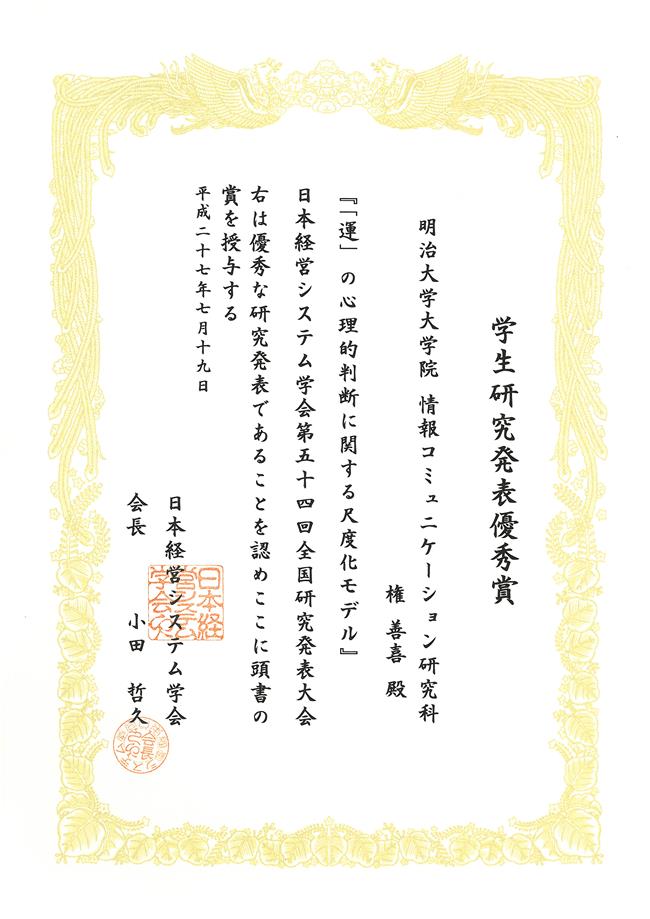 学生研究発表優秀賞
明治大学大学院 情報コミュニケーション研究科
権 善喜 殿
『「運」の心理的判断に関する尺度化モデル』
日本経営システム学会第五十四回全国研究発表大会
右は優秀な研究発表であることを認めここに頭書の
賞を授与する
平成二十七年七月十九日
日本経営システム学会
会長 小田 哲久
日本経
営システム
学会之印